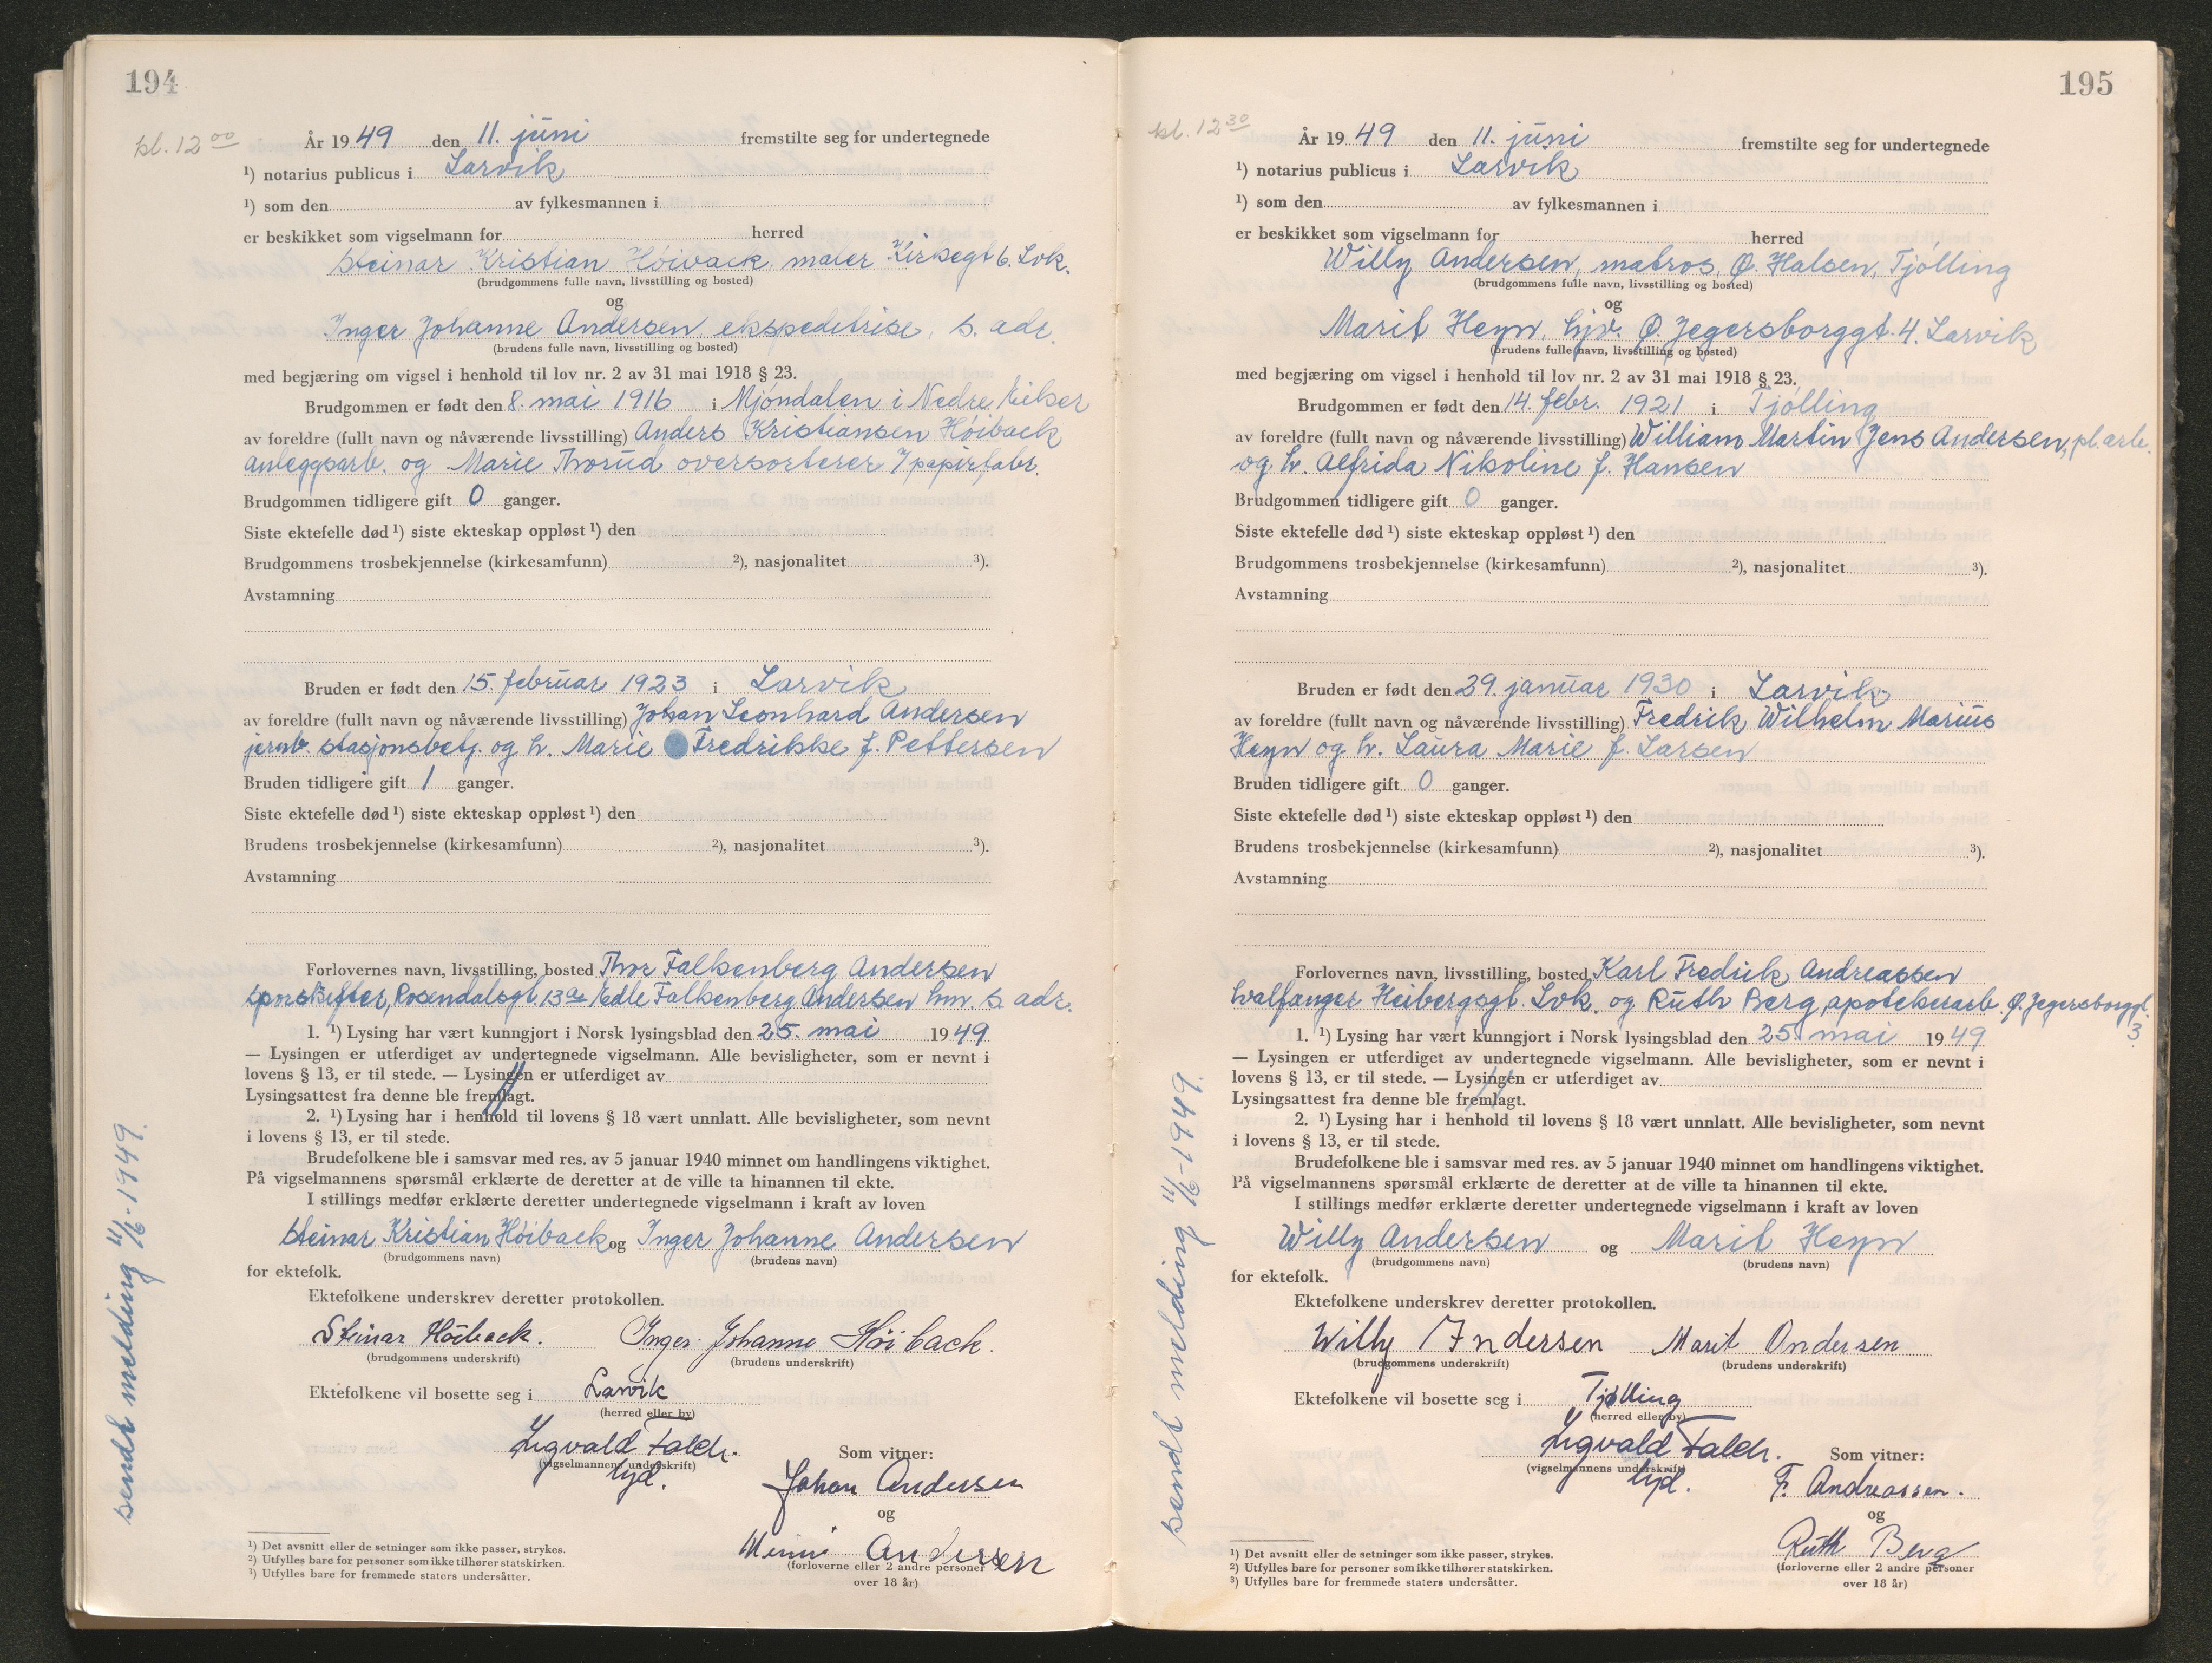 194
kl. 12 00
År 1949 den 11. juni fremstilte seg for undertegnede
¹) notarius publicus i Larvik
¹) som den av fylkesmannen i
er beskikket som vigselmann for herred
Steinar Kristian Høiback, maler Kirkegt 6. Lvk.
(brudgommens fulle navn, livsstilling og bosted)
og
Inger Johanne Andersen, ekspeditrise, s. adr.
(brudens fulle navn, livsstilling og bosted)
med begjæring om vigsel i henhold til lov nr. 2 av 31 mai 1918 § 23.
Brudgommen er født den 8. mai 1916 i Mjöndalen i Nedre Eiker
av foreldre (fullt navn og nåværende livsstilling) Anders Kristiansen Høiback
anleggsarb. og Marie Thorud oversorterer i papirfabr.
Brudgommen tidligere gift 0 ganger.
Siste ektefelle død ¹) siste ekteskap oppløst ¹) den
Brudgommens trosbekjennelse (kirkesamfunn) ²), nasjonalitet ³).
Avstamning
Bruden er født den 15. februar 1923 i Larvik
av foreldre (fullt navn og nåværende livsstilling) Johan Leonhard Andersen
jernb. stasjonsbetj. og h. Marie Fredrikke f. Pettersen
Bruden tidligere gift 1 ganger.
Siste ektefelle død ¹) siste ekteskap oppløst ¹) den
Brudens trosbekjennelse (kirkesamfunn) ²), nasjonalitet ³).
Avstamning
Forlovernes navn, livsstilling, bosted Thor Falkenberg Andersen
sporskifter, Rosendalsgt. 13 a Edle Falkenberg Andersen hm. s. adr.
1. ¹) Lysing har vært kunngjort i Norsk lysingsblad den 25. mai 1949
— Lysingen er utferdiget av undertegnede vigselmann. Alle bevisligheter, som er nevnt i
lovens § 13, er til stede. — Lysingen er utferdiget av
Lysingsattest fra denne ble fremlagt.
2. ¹) Lysing har i henhold til lovens § 18 vært unnlatt. Alle bevisligheter, som nevnt
i lovens § 13, er til stede.
Brudefolkene ble i samsvar med res. av 5 januar 1940 minnet om handlingens viktighet.
På vigselmannens spørsmål erklærte de deretter at de ville ta hinannen til ekte.
I stillings medfør erklærte deretter undertegnede vigselmann i kraft av loven
Steinar Kristian Høiback og Inger Johanne Andersen
(brudgommens navn) (brudens navn)
for ektefolk.
Ektefolkene underskrev deretter protokollen.
Steinar Høiback. Inger Johanne Höiback.
(brudgommens underskrift) (brudens underskrift)
Ektefolkene vil bosette seg i Larvik
(herred eller by)
Sigvald Faldt.
(vigselmannens underskrift)
Som vitner:
Johan Andersen
og
Minni Andersen
(forloverne eller 2 andre personer
over 18 år)
sendt melding 11/6-1949.
¹) Det avsnitt eller de setninger som ikke passer, strykes.
²) Utfylles bare for personer som ikke tilhører statskirken.
³) Utfylles bare for fremmede staters undersåtter.
195
kl. 12 30
År 1949 den 11. juni fremstilte seg for undertegnede
¹) notarius publicus i Larvik
¹) som den av fylkesmannen i
er beskikket som vigselmann for herred
Willy Andersen, matros, Ø. Halsen, Tjölling
(brudgommens fulle navn, livsstilling og bosted)
og
Marit Heyn, hjv. Ø. Jegersborggt. 4. Larvik
(brudens fulle navn, livsstilling og bosted)
med begjæring om vigsel i henhold til lov nr. 2 av 31 mai 1918 § 23.
Brudgommen er født den 14. febr. 1921 i Tjölling
av foreldre (fullt navn og nåværende livsstilling) William Martin Jens Andersen, pl. arb.
og h. Alfrida Nikoline f. Hansen
Brudgommen tidligere gift 0 ganger.
Siste ektefelle død ¹) siste ekteskap oppløst ¹) den
Brudgommens trosbekjennelse (kirkesamfunn) ²), nasjonalitet ³).
Avstamning
Bruden er født den 29. januar 1930 i Larvik
av foreldre (fullt navn og nåværende livsstilling) Fredrik Wilhelm Marius
Heyn og h. Laura Marie f. Larsen
Bruden tidligere gift 0 ganger.
Siste ektefelle død ¹) siste ekteskap oppløst ¹) den
Brudens trosbekjennelse (kirkesamfunn) ²), nasjonalitet ³).
Avstamning
Forlovernes navn, livsstilling, bosted Karl Fredrik Andreassen
hvalfanger Heibergsgt. Lvk. og Ruth Berg, apotekerarb. Ø. Jegersborggt.
3
1. ¹) Lysing har vært kunngjort i Norsk lysingsblad den 25. mai 1949
— Lysingen er utferdiget av undertegnede vigselmann. Alle bevisligheter, som er nevnt i
lovens § 13, er til stede. — Lysingen er utferdiget av
Lysingsattest fra denne ble fremlagt.
2. ¹) Lysing har i henhold til lovens § 18 vært unnlatt. Alle bevisligheter, som nevnt
i lovens § 13, er til stede.
Brudefolkene ble i samsvar med res. av 5 januar 1940 minnet om handlingens viktighet.
På vigselmannens spørsmål erklærte de deretter at de ville ta hinannen til ekte.
I stillings medfør erklærte deretter undertegnede vigselmann i kraft av loven
Willy Andersen og Marit Heyn
(brudgommens navn) (brudens navn)
for ektefolk.
Ektefolkene underskrev deretter protokollen.
Willy Andersen Marit Andersen
(brudgommens underskrift) (brudens underskrift)
Ektefolkene vil bosette seg i Tjølling
(herred eller by)
Sigvald Faldt.
(vigselmannens underskrift)
Som vitner:
F. Andreassen.
og
Ruth Berg
(forloverne eller 2 andre personer
over 18 år)
sendt melding 11/6-1949.
¹) Det avsnitt eller de setninger som ikke passer, strykes.
²) Utfylles bare for personer som ikke tilhører statskirken.
³) Utfylles bare for fremmede staters undersåtter.